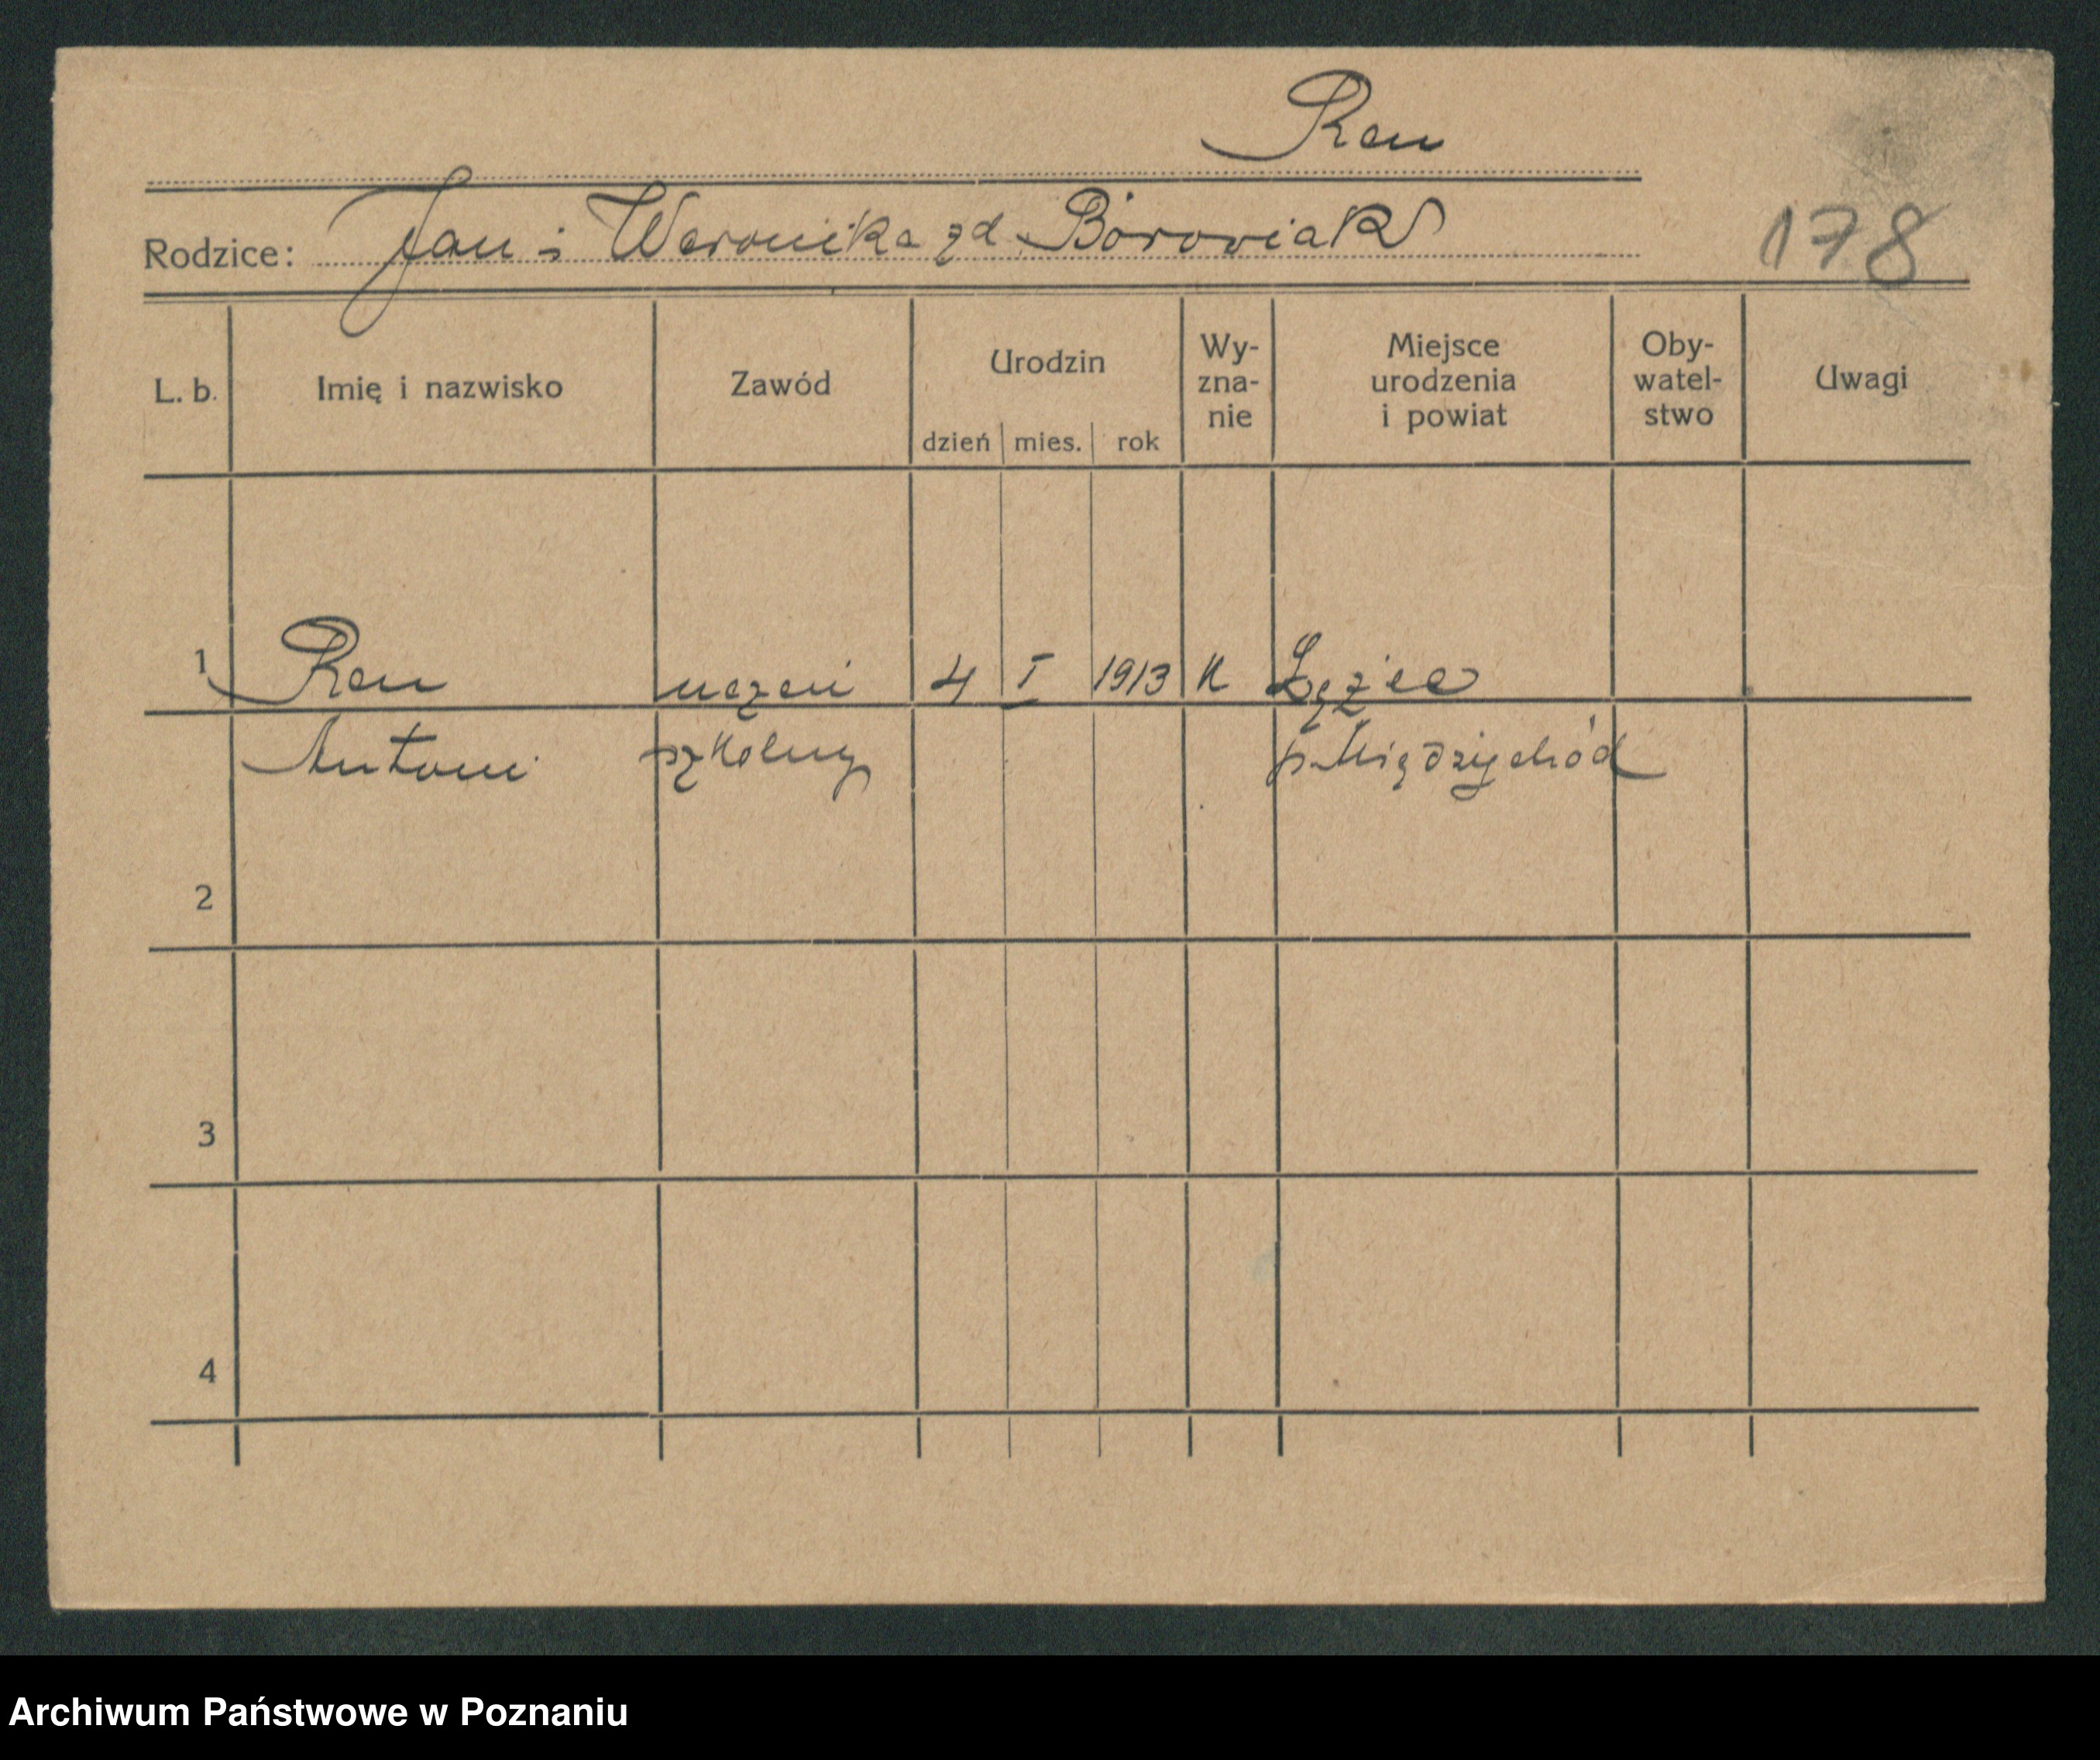 Ren
Rodzice: Jan i Weronika zd Borowiak
178
L. b. Imię i nazwisko Zawód Urodzin dzień mies. rok Wy-zna-nie Miejsce urodzenia i powiat Oby-watel-stwo Uwagi
1 Ren uczeń 4 I 1913 K Łężce
Antoni szkolny p. Międzychód
2
3
4
Archiwum Państwowe w Poznaniu